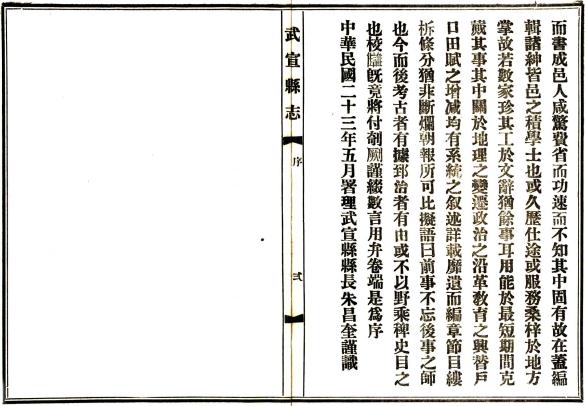 而書成邑人咸驚費省而功速而不知其中固有故在蓋編
輯諸紳皆邑之積學士也或久歷仕途或服務桑梓於地方
掌故若數家珍其工於文辭猶餘事耳用能於最短期間克
蕆其事其中關於地理之變遷政治之沿革敎育之興替戶
口田賦之增減均有系統之叙述詳載靡遺而編章節目縷
析條分猶非斷爛朝報所可比擬語曰前事不忘後事之師
也今而後考古者有據到治者有由或不以野乘稗史目之
也校讎旣竟將付剞劂謹綴數言用弁卷端是爲序
中華民國二十三年五月署理武宣縣縣長朱昌奎謹識
武宣縣志
序
弍